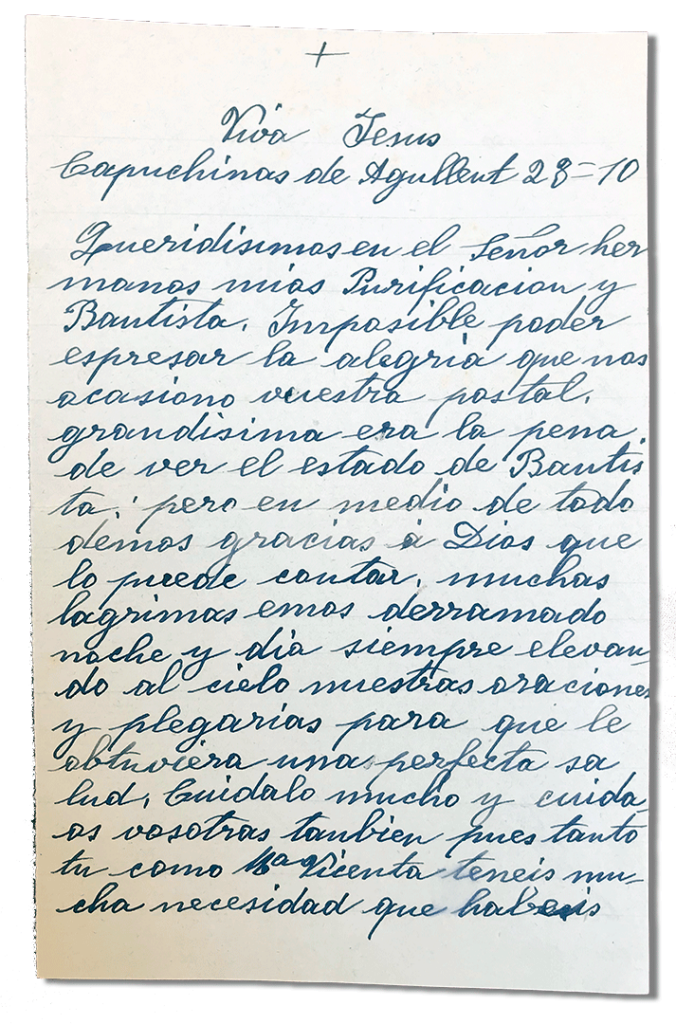 +
Viva Jesus
Capuchinas de Agullent 28=10
Queridisimos en el Señor her
manos mios Purificacion y
Bautista. Imposible poder
espresar la alegria que nos
ocasiono vuestra postal.
grandisima era la pena
de ver el estado de Bautis
ta; pero en medio de todo
demos gracias á Dios que
lo puede contar, muchas
lagrimas emos derramado
noche y dia siempre elevan
do al cielo nuestras oraciones
y plegarias para que le
obtuviera una perfecta sa
lud, Cuidalo mucho y cuida
os vosotras tanbien pues tanto
tu como Mª Vicenta teneis mu-
cha necesidad que habeis